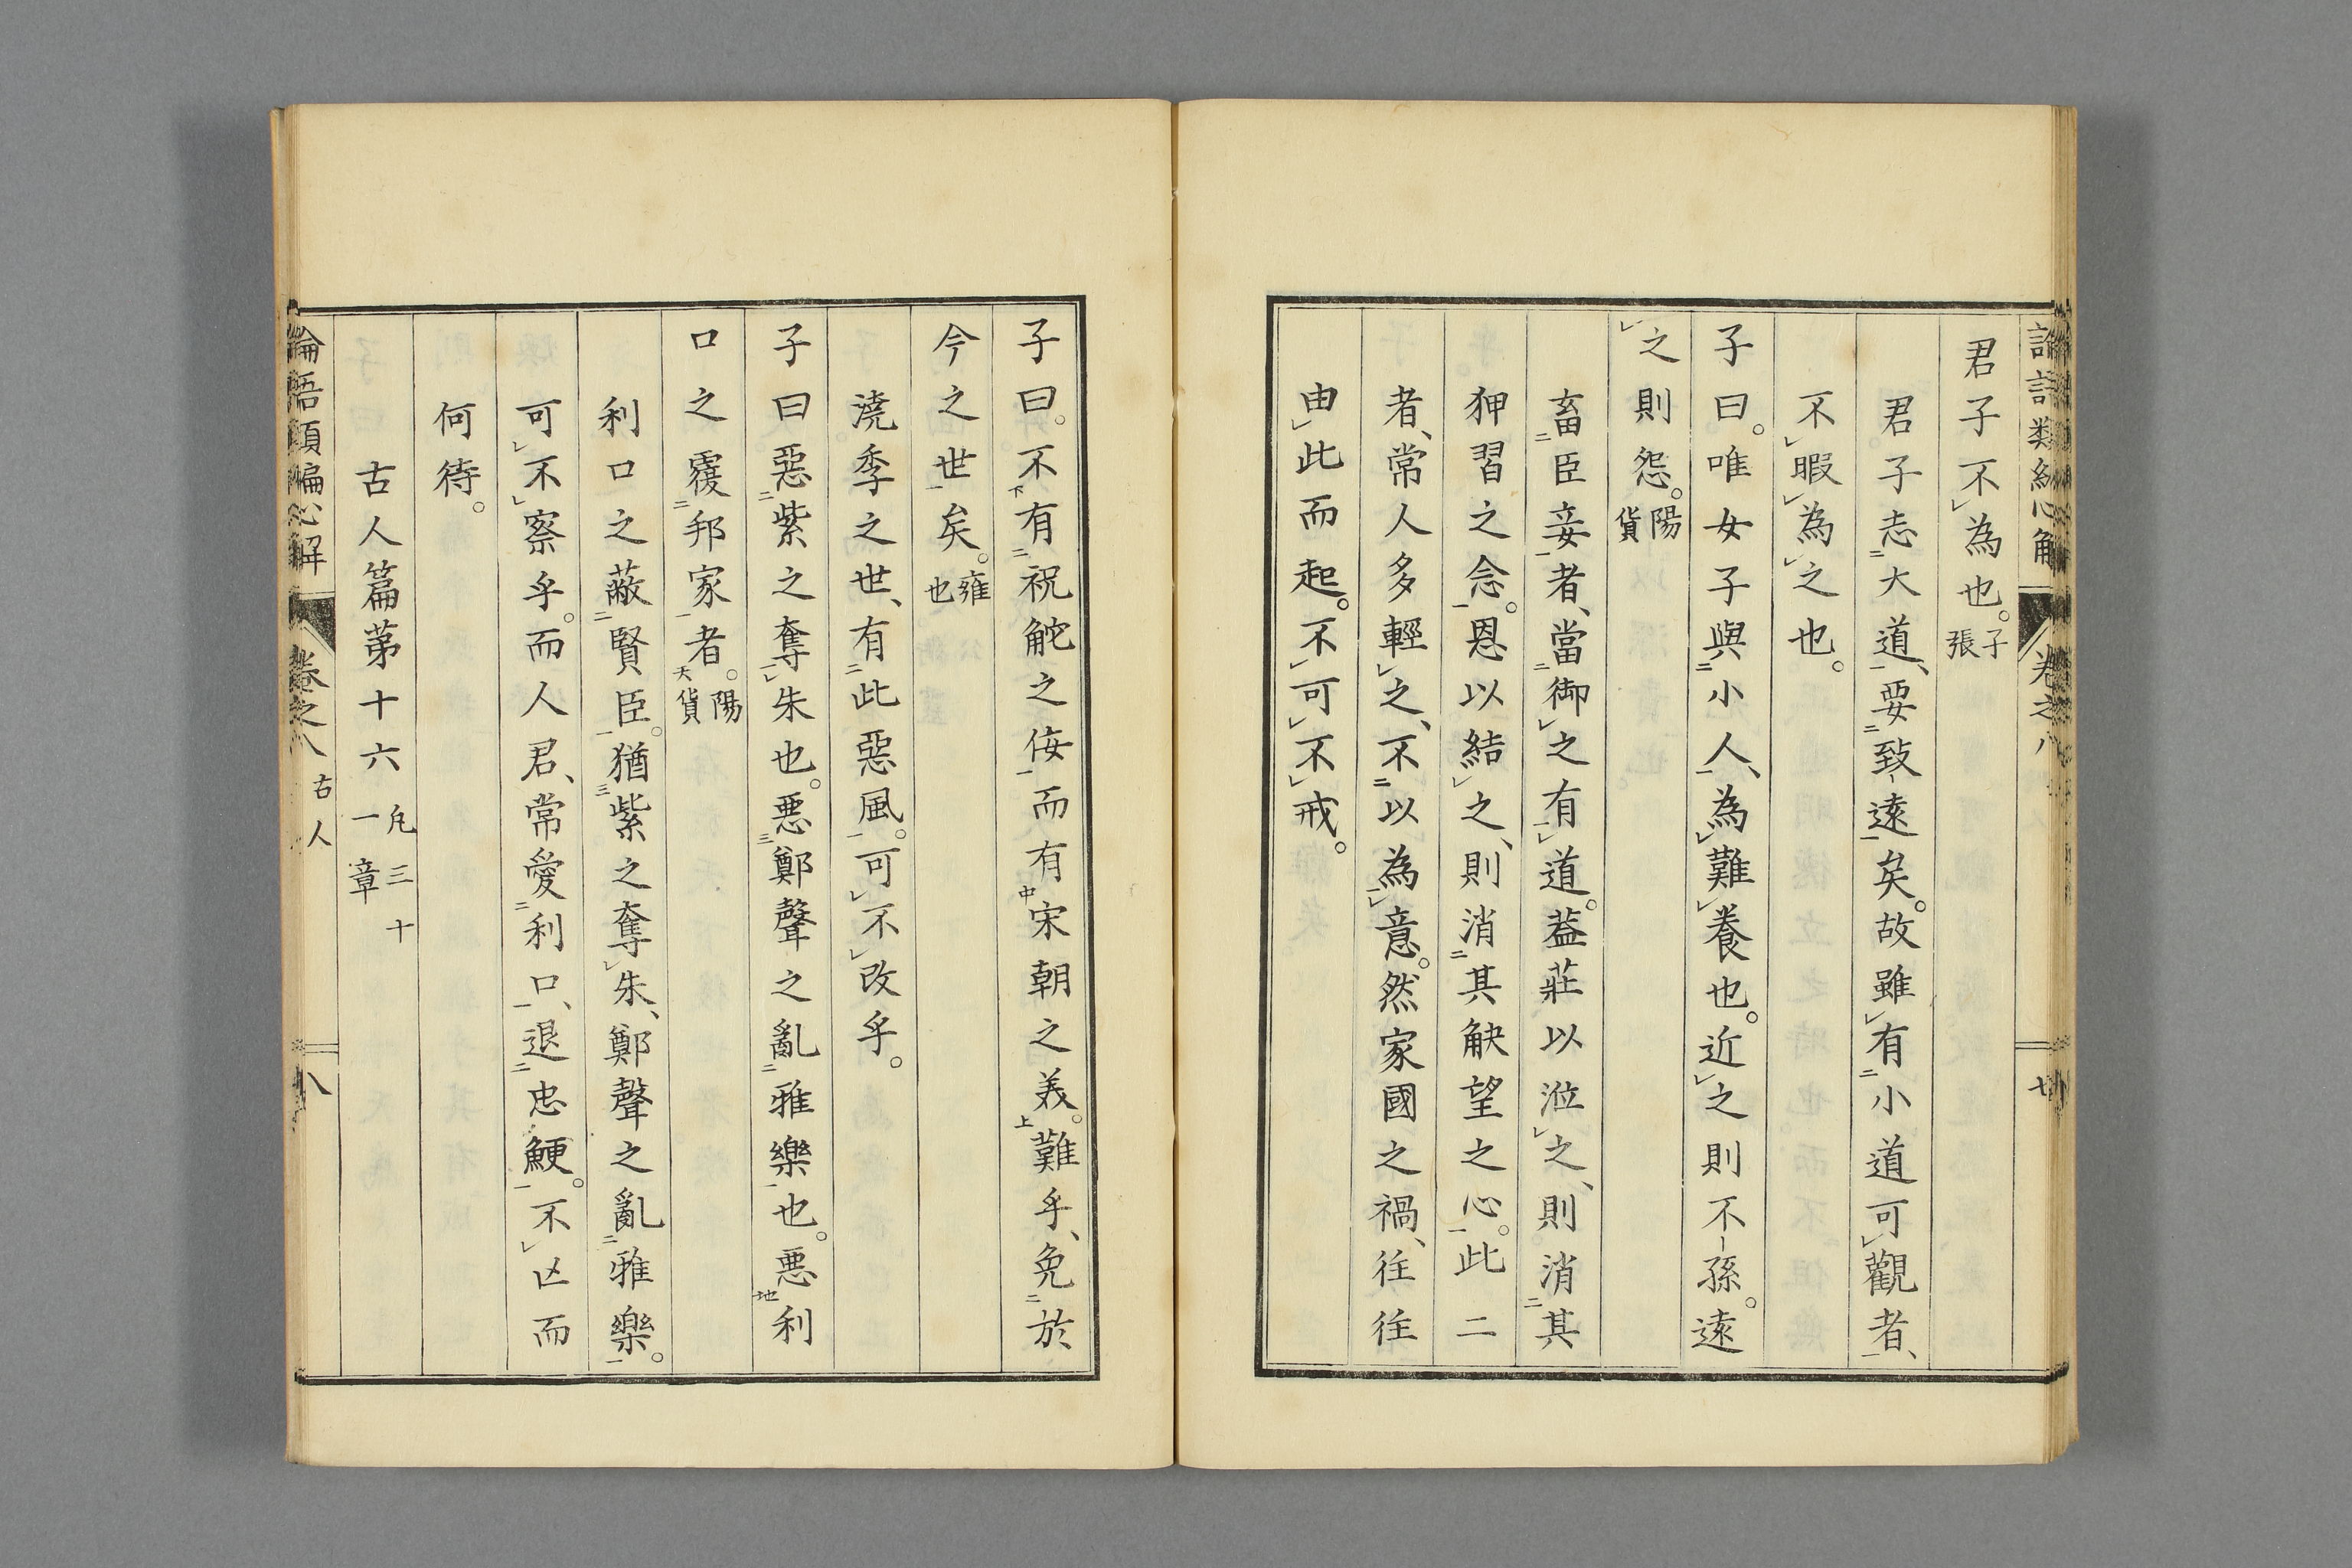 論語類編心解 卷之八 七
君子不為也。子張
君子志大道、要致遠矣。故雖有小道可觀者、
不暇為之也。
子曰。唯女子與小人、為難養也。近之則不孫。遠
之則怨。陽貨
畜臣妾者、當御之有道。蓋莊以涖之、則消其
狎習之念。恩以結之、則消其觖望之心。此二
者、常人多輕之、不以為意。然家國之禍、往往
由此而起。不可不戒。
子曰。不有祝鮀之侫而有宋朝之美。難乎、免於
今之世矣。雍也
澆季之世、有此惡風。可不改乎。
子曰惡紫之奪朱也。惡鄭聲之亂雅樂也。惡利
口之覆邦家者。陽貨
利口之蔽賢臣。猶紫之奪朱、鄭聲之亂雅樂。
可不察乎。而人君、常愛利口、退忠鯁。不亡而
何待。
古人篇第十六 凡三十一章
論語類編心解 卷之八 古人 八